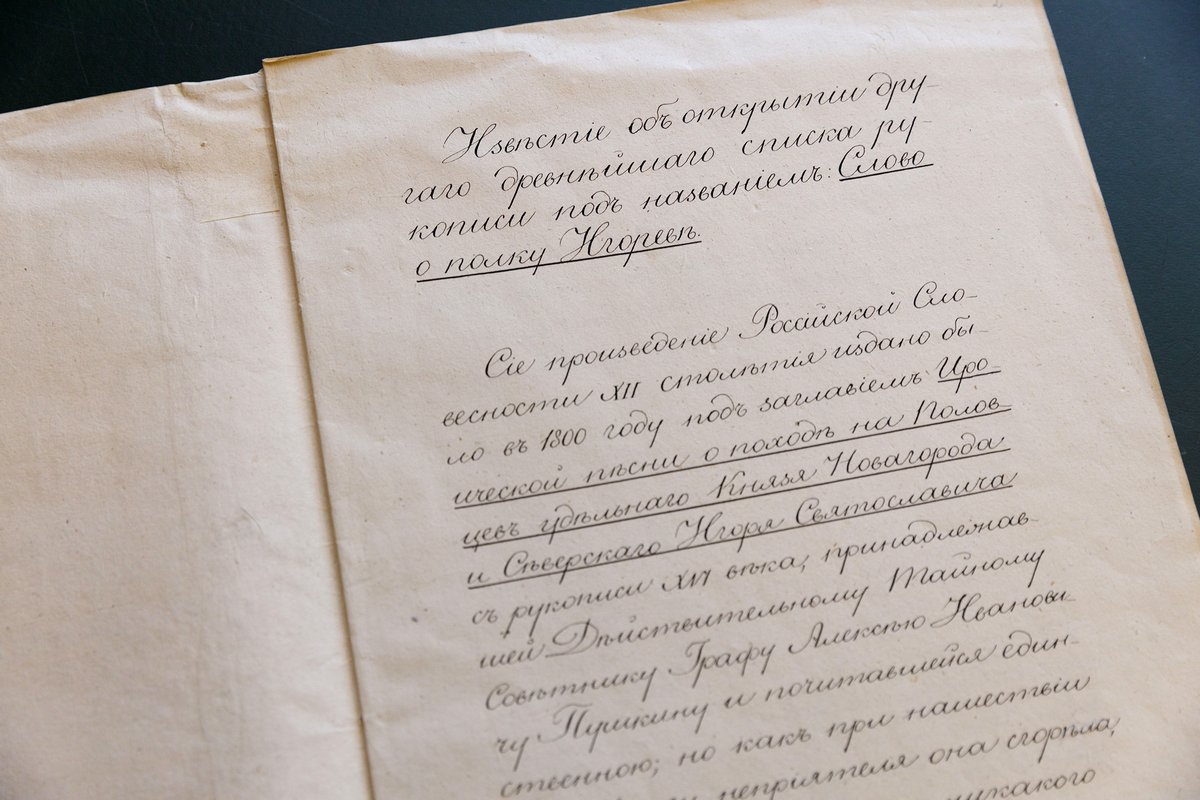 Извѣстіе объ открытіи дру-
гаго древнѣйшаго списка ру-
кописи подъ названіемъ: Слово
о полку Игоревѣ.
Сіе произведеніе Россійской Сло-
весности XII столѣтія издано бы-
ло въ 1800 году подъ заглавіемъ Иро-
ической пѣсни о походѣ на Полов-
цевъ удѣльнаго Князя Новагорода
и Сѣверскаго Игоря Святославича
съ рукописи XIV вѣка, принадлежав-
шей Дѣйствительному Тайному
Совѣтнику Графу Алексѣю Иванови-
чу Пушкину и почитавшейся един-
ственною; но какъ при нашествіи
непріятеля она сгорѣла,
никакого